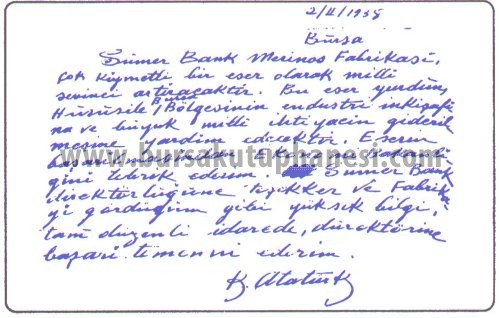 2/II/1938
Bursa
Sümer Bank Merinos Fabrikası,
çok kıymetli bir eser olarak millî
sevinci artıracaktır. Bu eser yurdun,
Hususile Bursa Bölgesinin endüstri inkişafı
na ve büyük millî ihtiyacın gideril
mesine yardım edecektir. Eserin
www.bursakutuphanesi.com
ğini tebrik ederim. Sümer Bank
direktörlüğüne teşekkür ve Fabrika
yı gördüğüm gibi yüksek bilgi,
tam düzenli idarede, direktörüne
başarı temenni ederim.
K. Atatürk